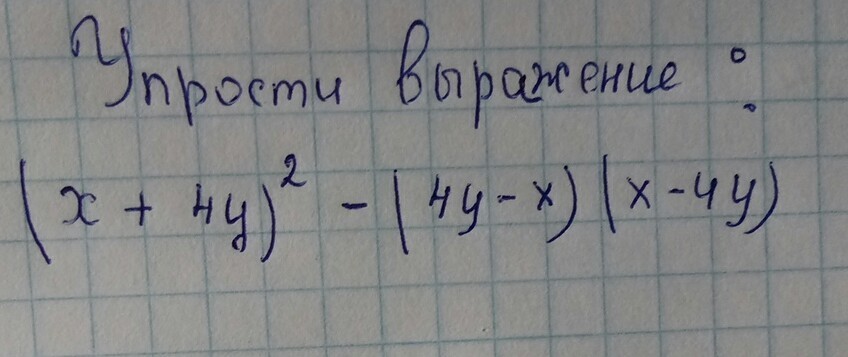 Упрости выражение :
(x + 4y)² - (4y - x) (x - 4y)